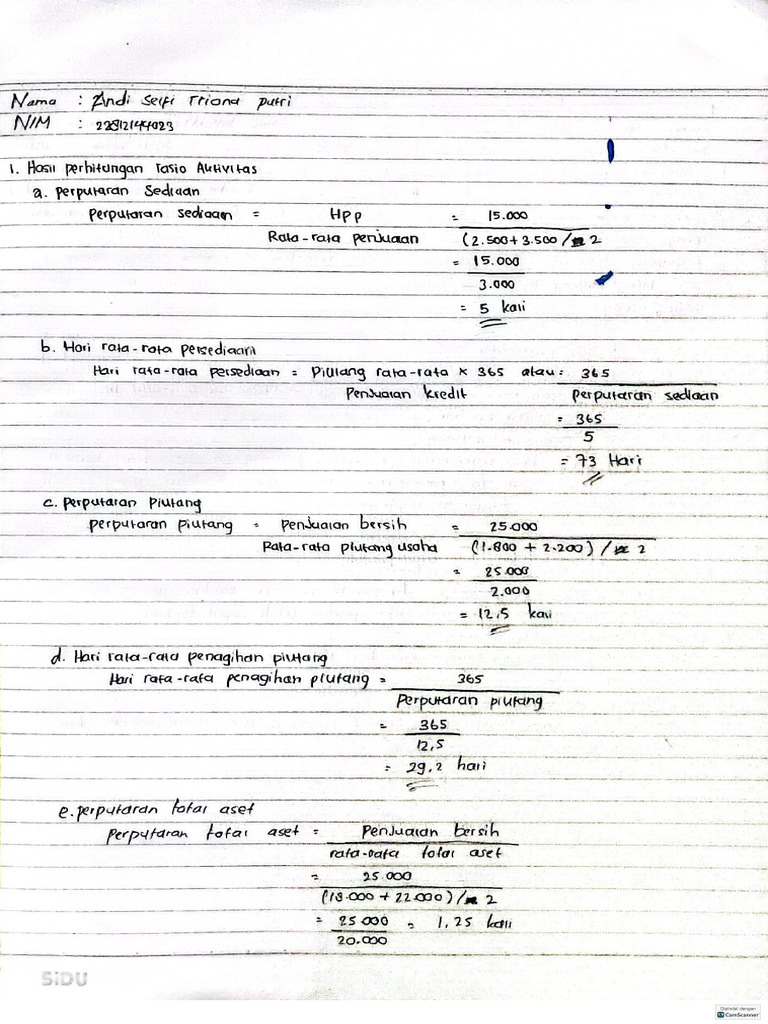 Nama : Andi Selfi Triana putri
NIM : 22812144023
1. Hasil perhitungan rasio Aktivitas
a. perputaran Sediaan
perputaran sediaan = Hpp = 15.000
Rata-rata penjualan (2.500+3.500 / 2
= 15.000
3.000
= 5 kali
b. Hari rata-rata persediaan
Hari rata-rata persediaan = Piutang rata-rata × 365 atau = 365
Penjualan kredit perputaran sediaan
= 365
5
= 73 Hari
c. perputaran Piutang
perputaran piutang = penjualan bersih = 25.000
Rata-rata piutang usaha (1.800 + 2.200) / 2
= 25.000
2.000
= 12,5 kali
d. Hari rata-rata penagihan piutang
Hari rata-rata penagihan piutang = 365
Perputaran piutang
= 365
12,5
= 29,2 hari
e. perputaran total aset
perputaran total aset = Penjualan bersih
rata-rata total aset
= 25.000
(18.000 + 22.000) / 2
= 25.000 = 1,25 kali
20.000
SiDU
Dipindai dengan
CS CamScanner